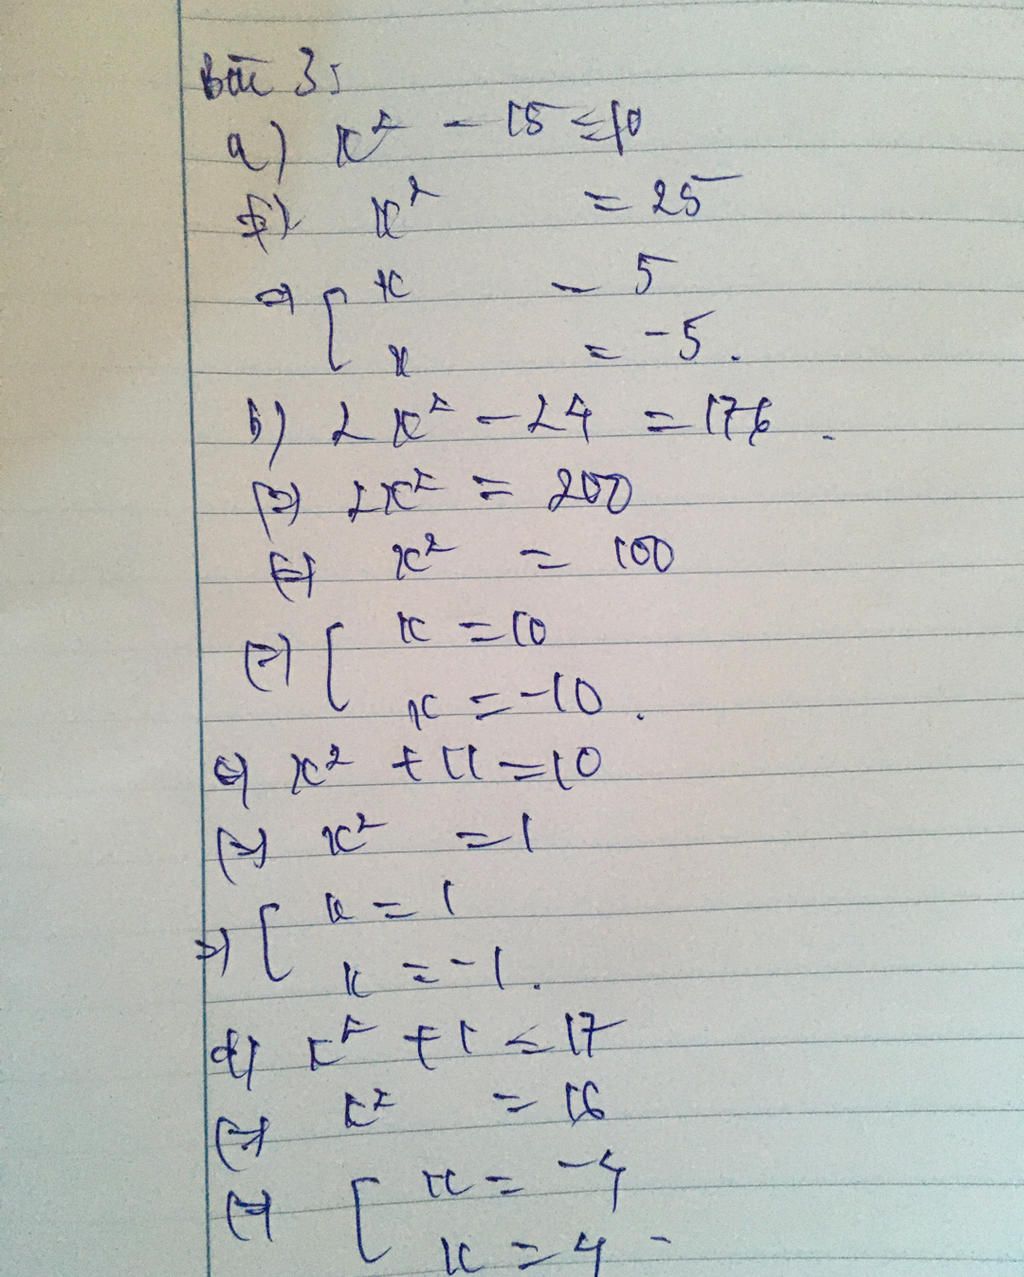 Bài 3:
a) x² - 15 = 10
⇔ x² = 25
⇒ [ x = 5
x = -5.
b) 2x² - 24 = 176.
⇔ 2x² = 200
⇔ x² = 100
⇔ [ x = 10
x = -10.
c) x² + 11 = 10
⇔ x² = 1
⇒ [ x = 1
x = -1.
d) x² + 1 = 17
⇔ x² = 16
⇔ [ x = -4
x = 4.